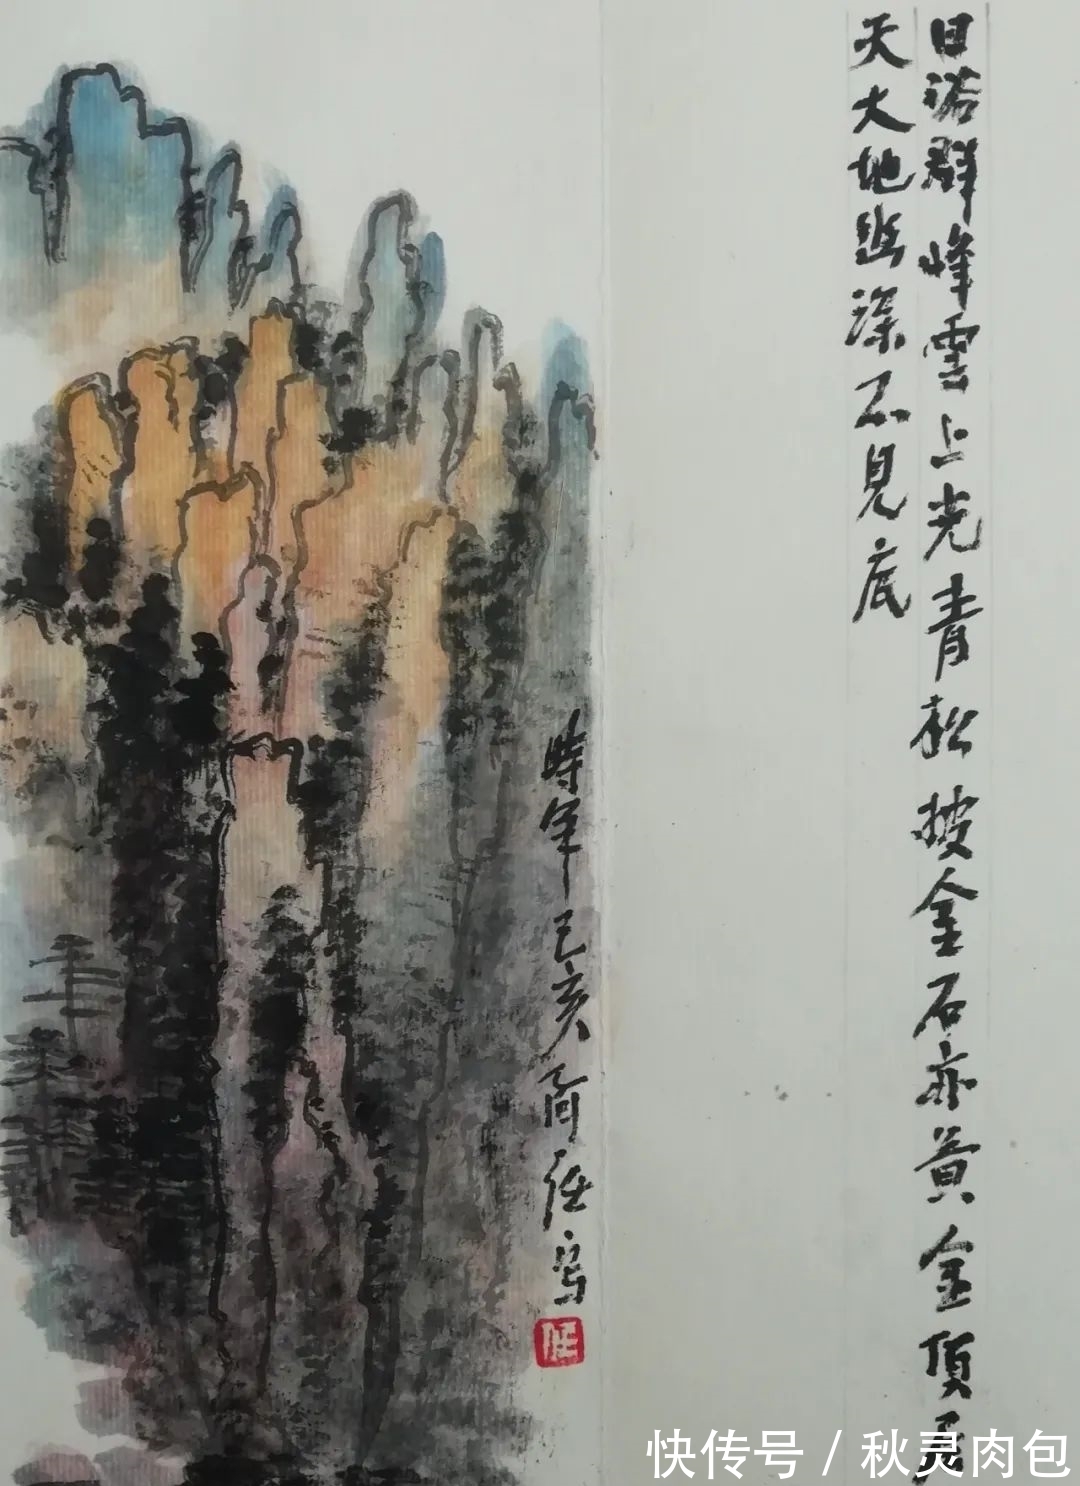 日浴群峰雲上光青松披金石亦黄金頂居
天大地幽深不見底
時年己亥商任写
任
快传号 / 秋灵肉包